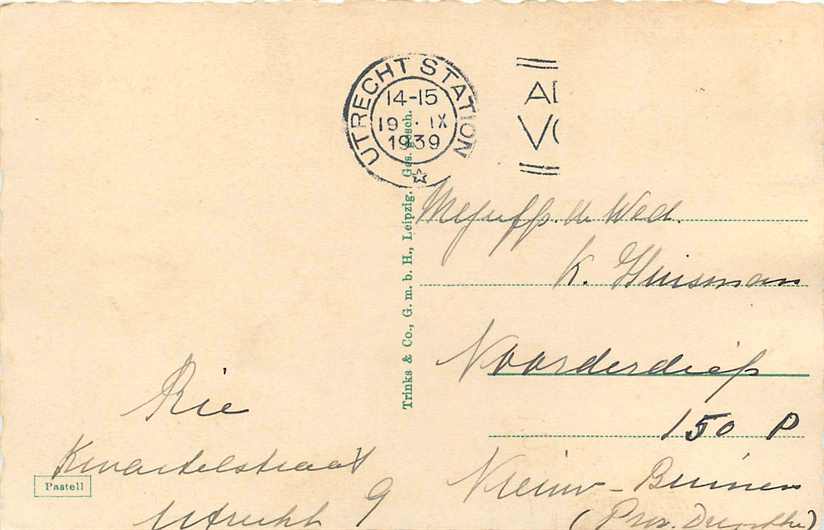 UTRECHT STATION
14-15
19 · IX
1939
AD
VO
Trinks & Co., G. m. b. H., Leipzig. Ges. gesch.
Mejuffr. de Wed.
K. Huisman
Noorderdiep
150 P
Nieuw-Buinen
(Prov. Drenthe)
Rie
Kwartelstraat
9
Utrecht
Pastell